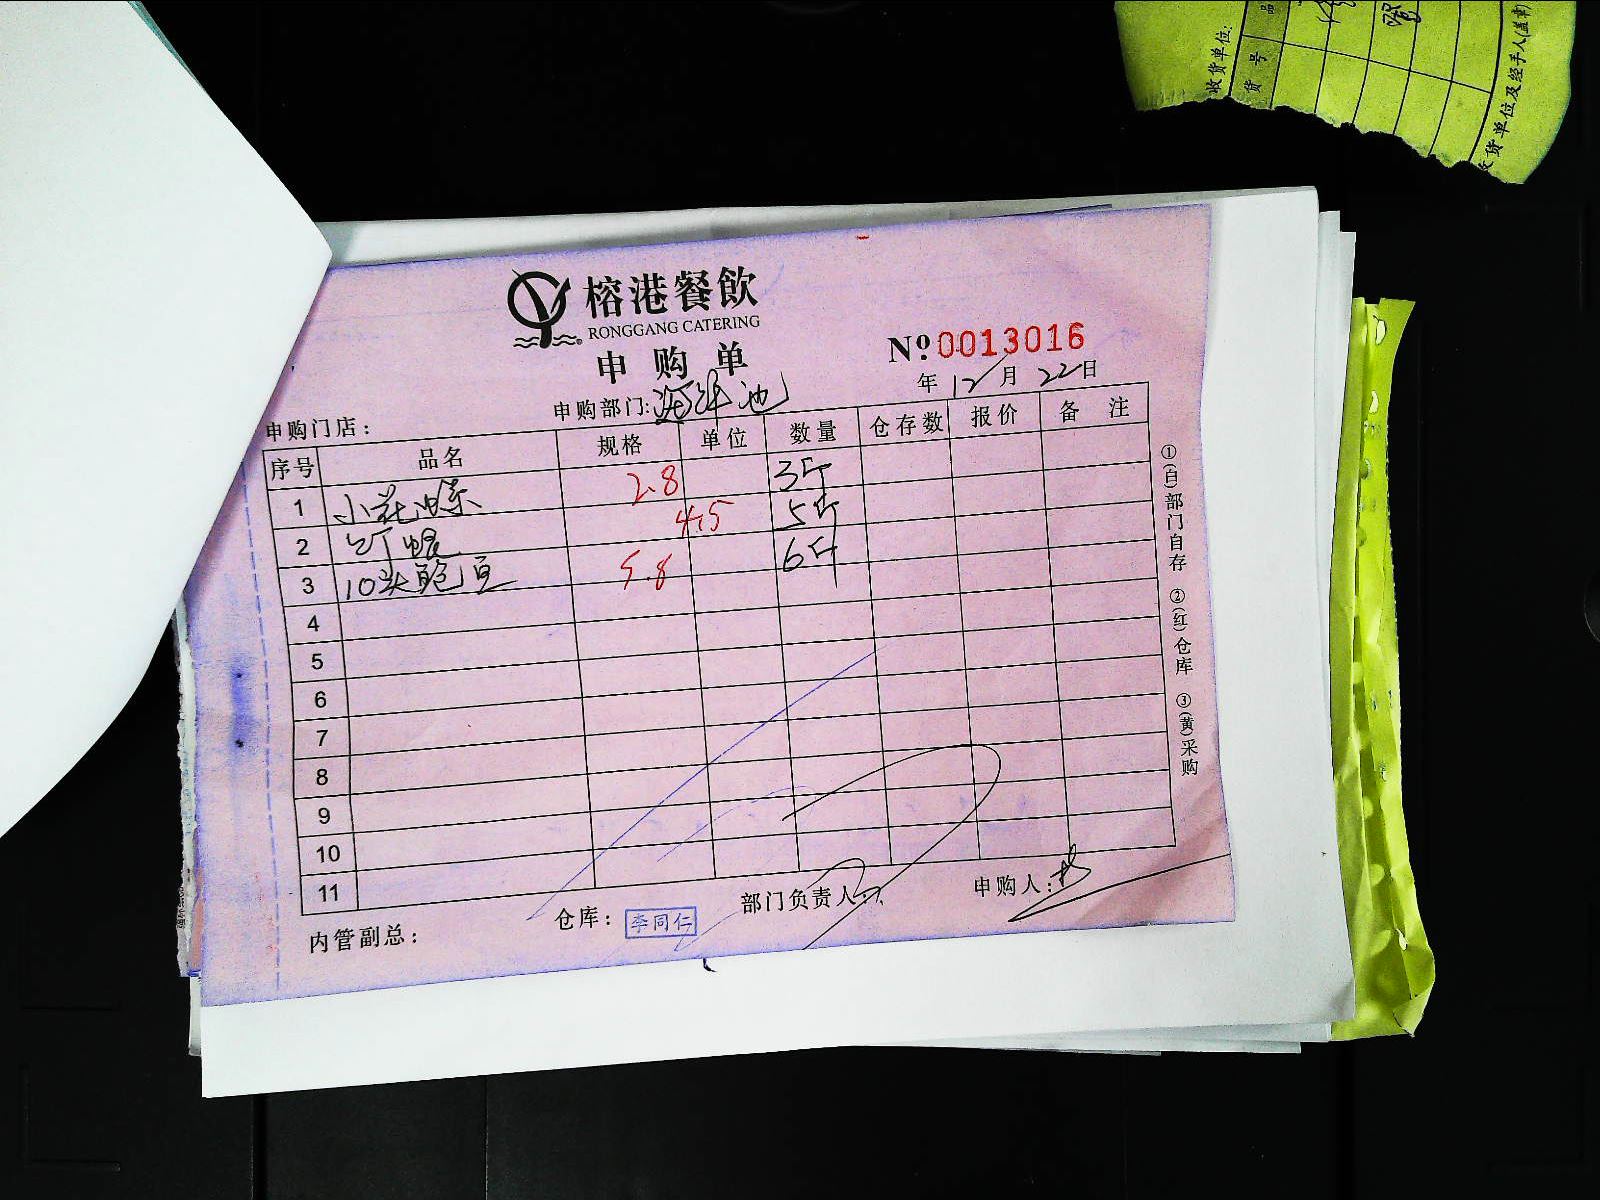 榕港餐飲
RONGGANG CATERING
申购单
№0013016
年 12 月 22 日
申购门店：
申购部门:海鲜池
序号 品名 规格 单位 数量 仓存数 报价 备注
1 小花 2.8 3斤
2 4.5 5斤
3 10头鲍 5.8 6斤
4
5
6
7
8
9
10
11
内管副总：
仓库：李同仁
部门负责人：
申购人：
①(白)部门自存 ②(红)仓库 ③(黄)采购
收货单位:
货号
品
收货单位及经手人(盖章)